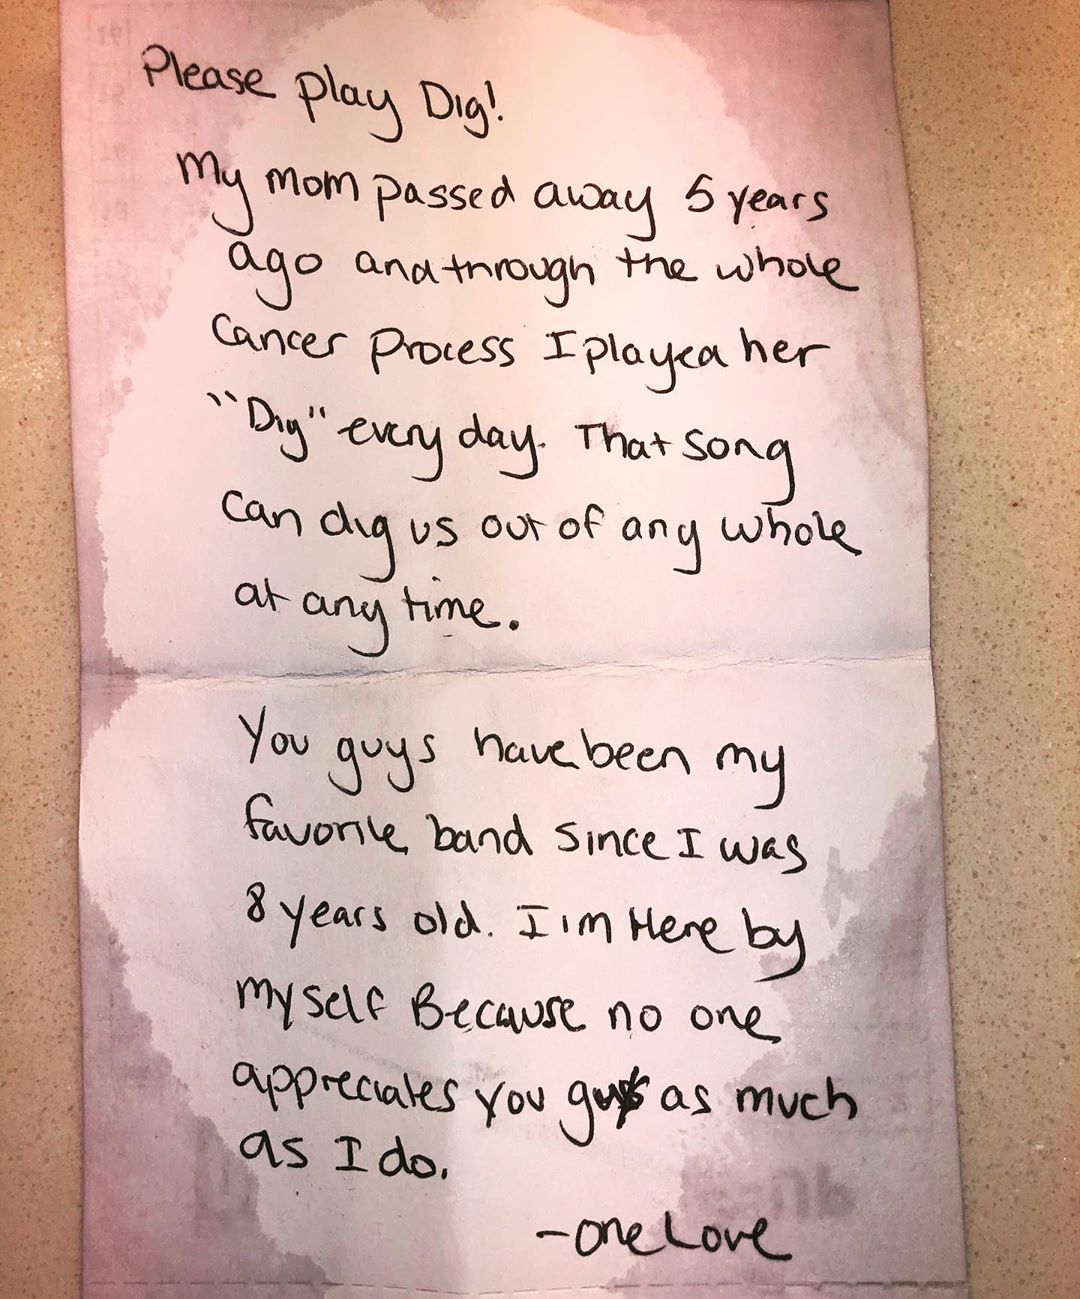 Please play Dig!
My mom passed away 5 years
ago and through the whole
cancer process I played her
"Dig" every day. That song
can dig us out of any whole
at any time.
You guys have been my
favorite band since I was
8 years old. I'm Here by
myself Because no one
appreciates you guys as much
as I do.
- One Love